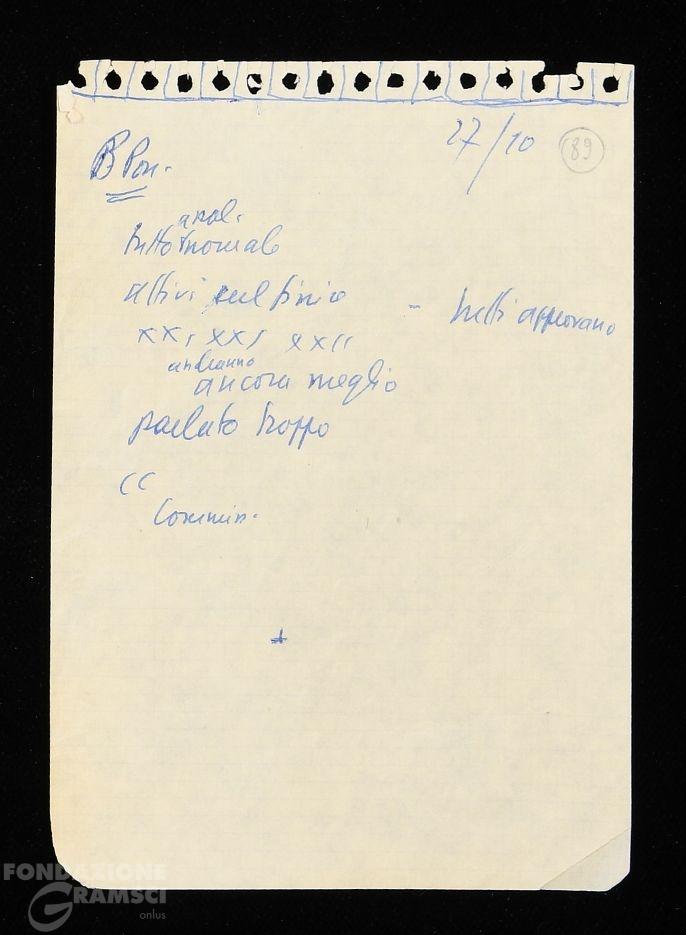 27/10
89
B Pon.
anal.
tutto normale
attivi sul
- tutti approvano
XX, XXI XXII
andranno
ancora meglio
parlato troppo
CC
Commin.
+
FONDAZIONE
GRAMSCI
onlus